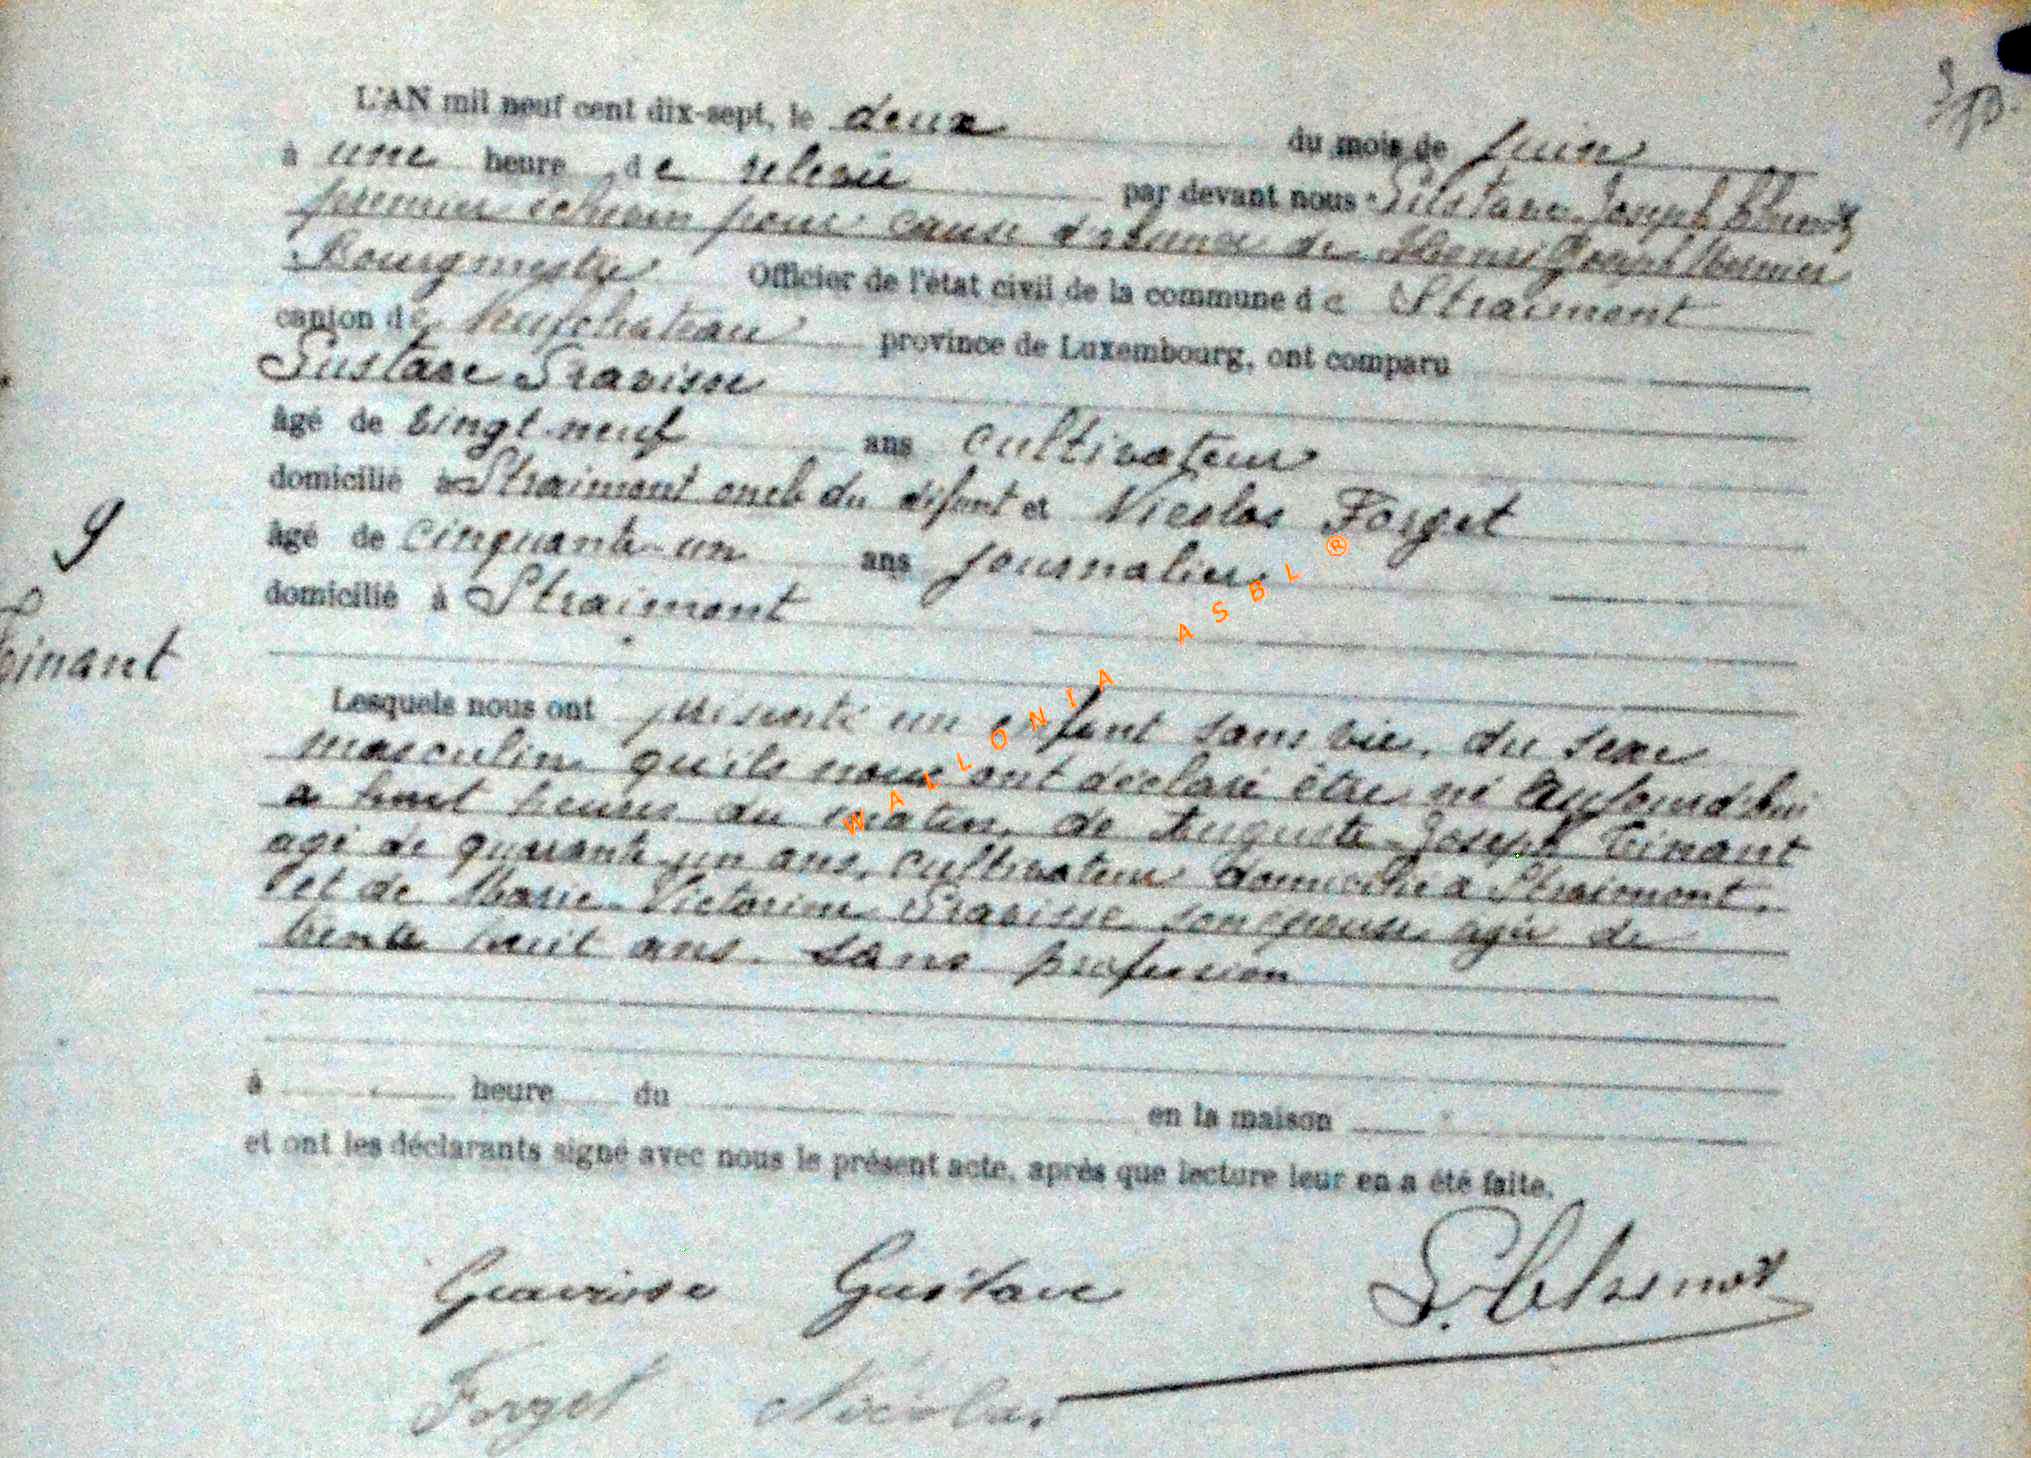 L'AN mil neuf cent dix-sept, le deux du mois de Juin
à une heure de relevée par devant nous Gustave Joseph
premier échevin pour cause d'absence de Henri Joseph
Bourgmestre Officier de l'état civil de la commune de Straimont
canton de Neufchateau province de Luxembourg, ont comparu
Gustave Gravisse
âgé de vingt-neuf ans cultivateur
domicilié à Straimont oncle du défunt et Nicolas Forget
âgé de cinquante-un ans journalier
domicilié à Straimont
9
Tinant
Lesquels nous ont présenté un enfant sans vie, du sexe
masculin qu'ils nous ont déclaré être né aujourd'hui
a huit heures du matin, de Auguste-Joseph Tinant
agé de quarante-un ans, cultivateur domicilié à Straimont,
et de Marie-Victorine Gravisse son épouse, agée de
trente huit ans. sans profession
à heure du en la maison
et ont les déclarants signé avec nous le présent acte, après que lecture leur en a été faite.
Gravisse Gustave
Forget Nicolas
WALLONIA ASBL ®